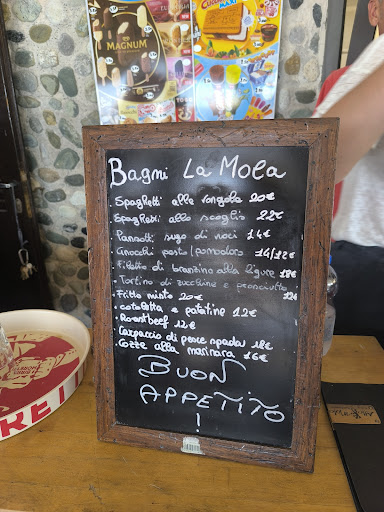 MAGNUM
Bagni La Mola
. Spaghetti alle vongole 20€
. Spaghetti allo scoglio 22€
. Pansoti sugo di noci 14€
. Gnocchi pesto/pomodoro 14/12€
. Filetto di branzino alla ligure 18€
. Tortino di zucchine e prosciutto 12€
. Fritto misto 20€
. cotoletta e patatine 12€
. Roastbeef 12€
. Carpaccio di pesce spada 18€
. Cozze alla marinara 16€
BUON
APPETITO
!